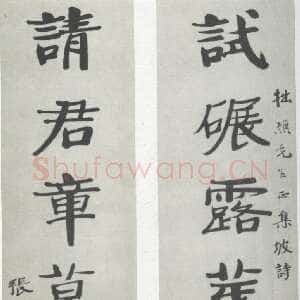 先生正集坡詩
試碾露芽
請君章草
張
Shufawang.CN